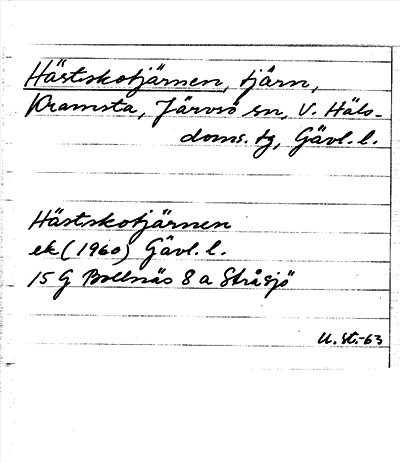 Hästskotjärnen, tjärn,
Kramsta, Järvsö sn, V. Häls-
doms. tg, Gävl. l.
Hästskotjärnen
ek (1960) Gävl. l.
15 G Bollnäs 8 a Stråsjö
U. St.-63